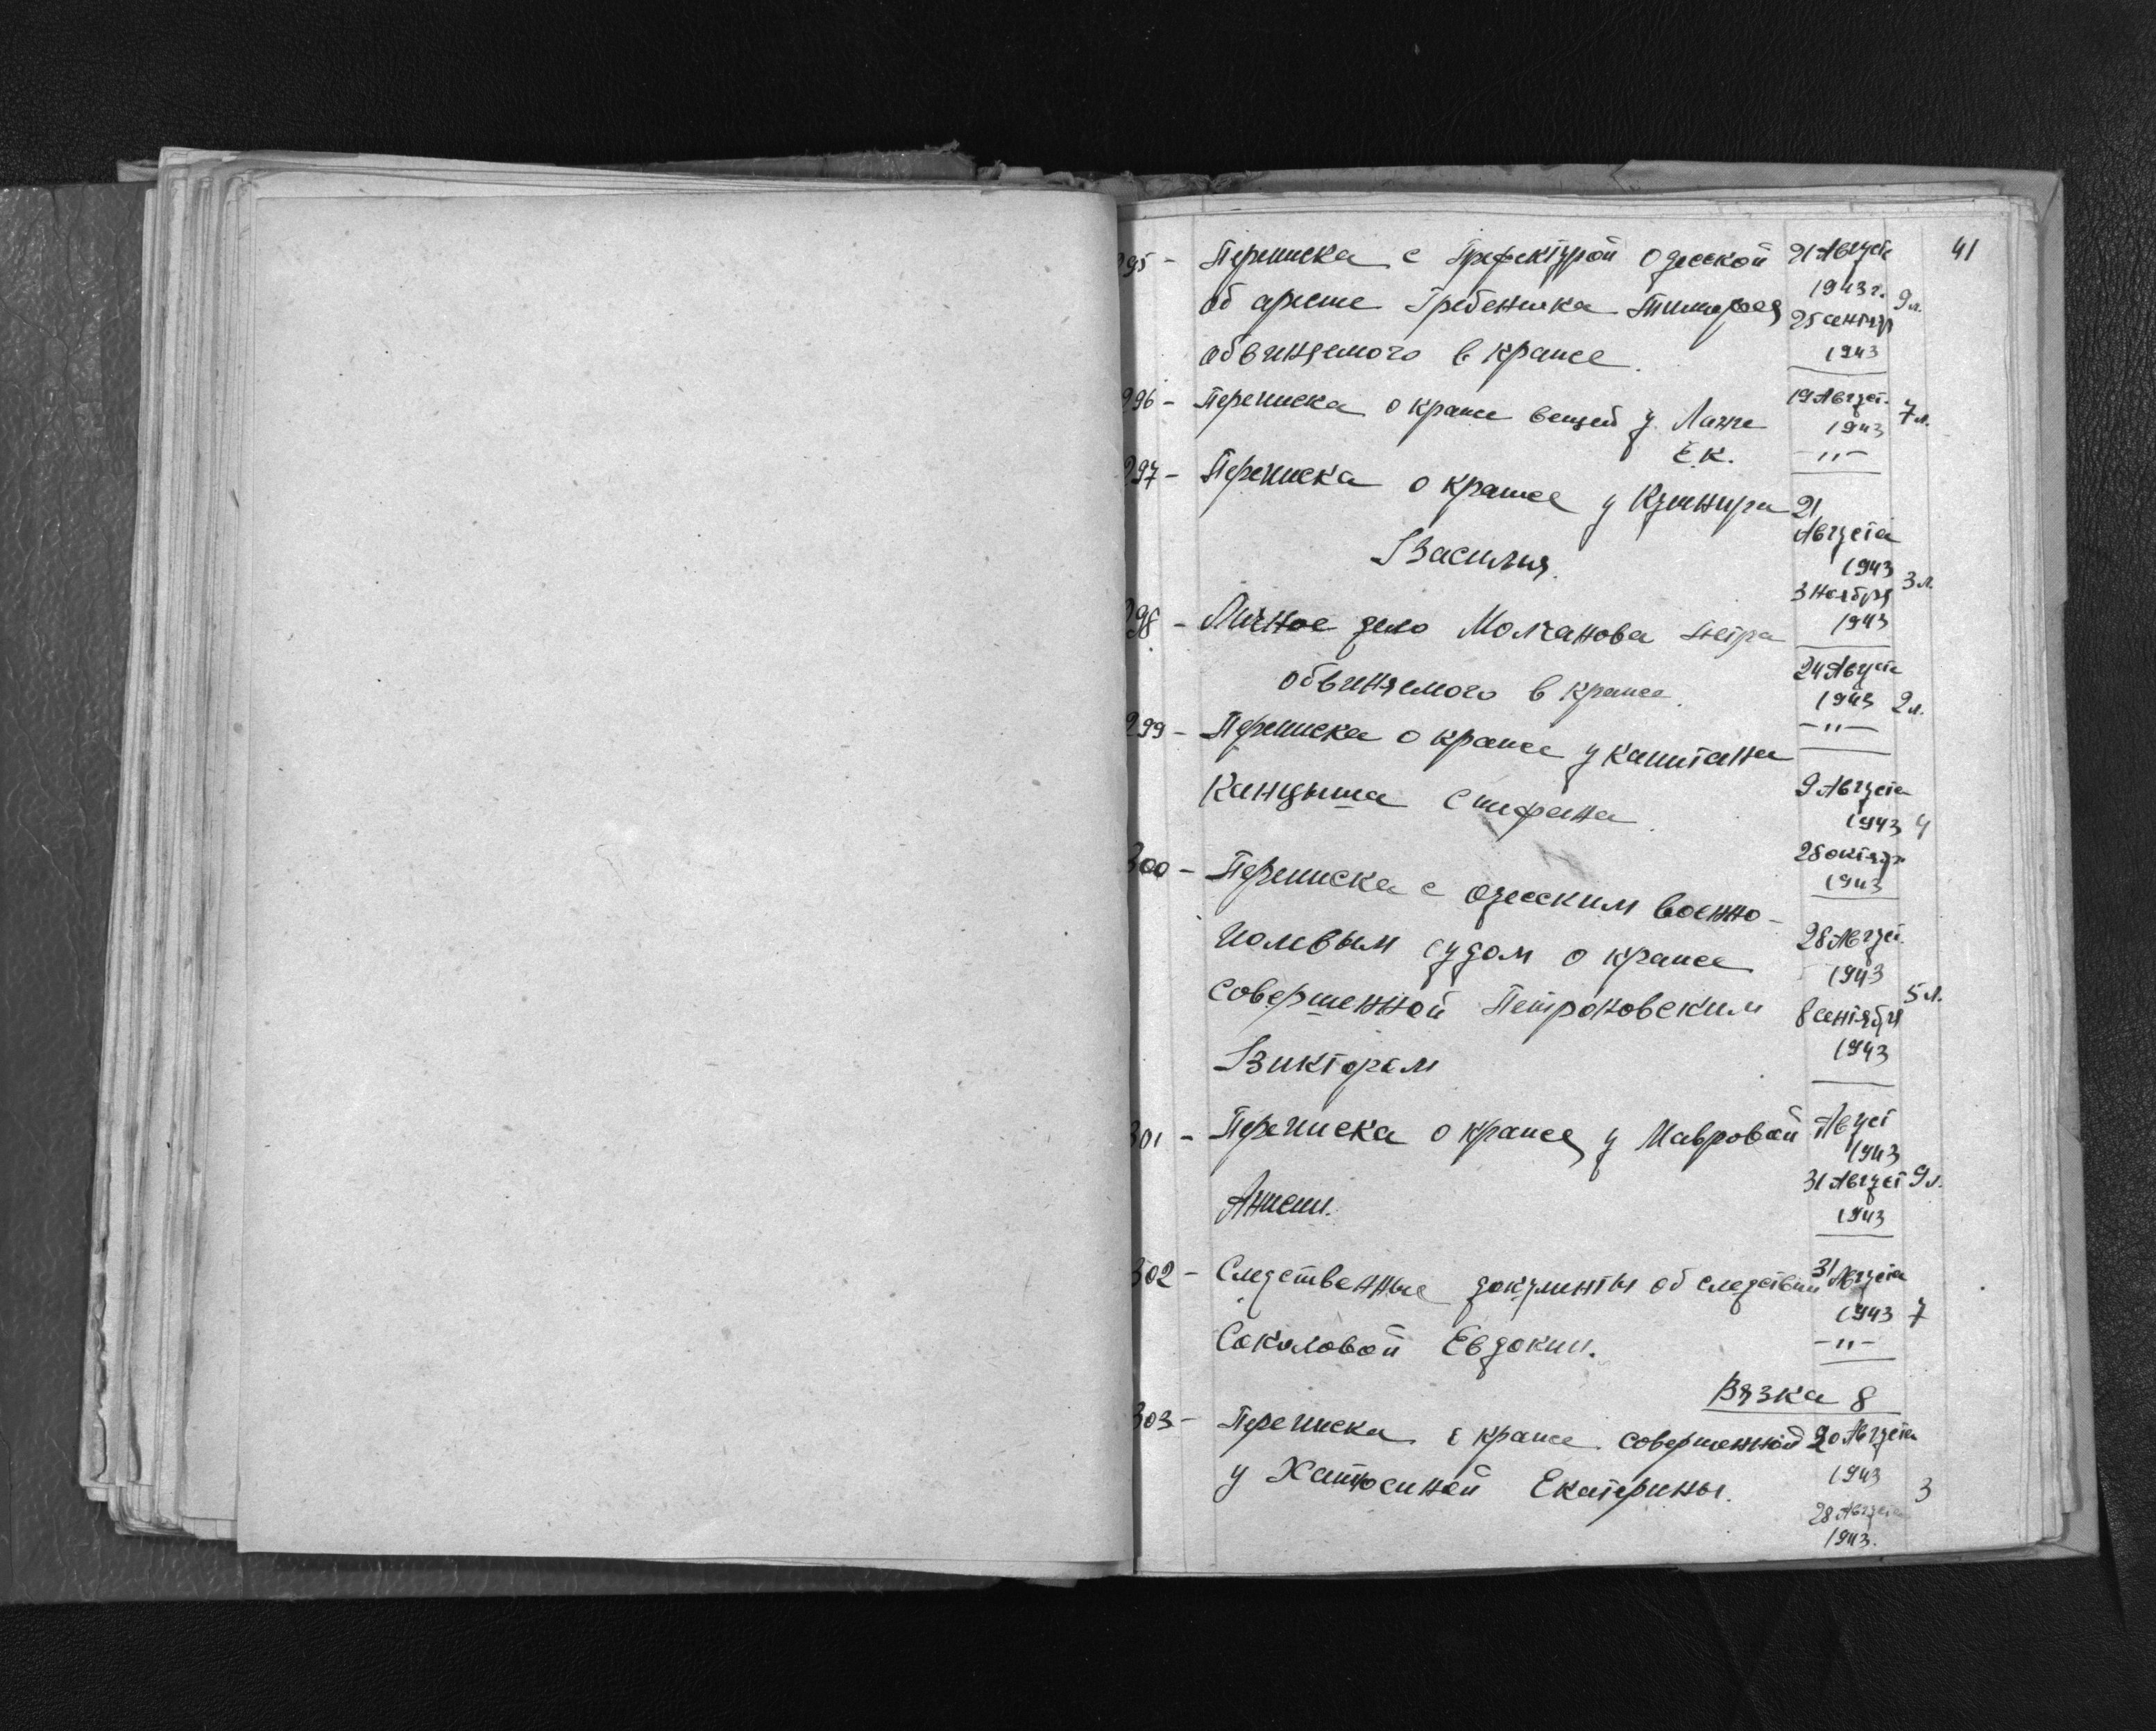 41
295 - Переписка с Префектурой Одесской 21 Август
об аресте Гребенника Тимофея 1943 г. 9 л.
25 сентяб
обвиняемого в краже. 1943
296 - Переписка о краже вещей у Лаже 19 Август. 1943 7 л.
Е.К. -"-
297 - Переписка о краже у Кушнира 21
Августа
Василия. 1943
3 ноября 3 л.
1943
298 - Личное дело Молчанова Петра
обвиняемого в краже. 24 Август
1943 2 л.
-"-
299 - Переписка о краже у капитана
Канцыша Стифана 9 Августа
1943 4
28 октяб
1943
300 - Переписка с одесским военно-
полевым судом о краже 28 Август
1943
совершенной Петроковским 8 сентября 5 л.
Виктором 1943
301 - Переписка о краже у Мавровой Август
1943
31 Август 9 л.
Анисии. 1943
302 - Следственные документы об следствии 31 Августа
1943 7
Соколовой Евдокии. -"-
Вязка 8
303 - Переписка о краже совершенной 20 Августа
у Екатерины. 1943 3
28 Августа
1943.